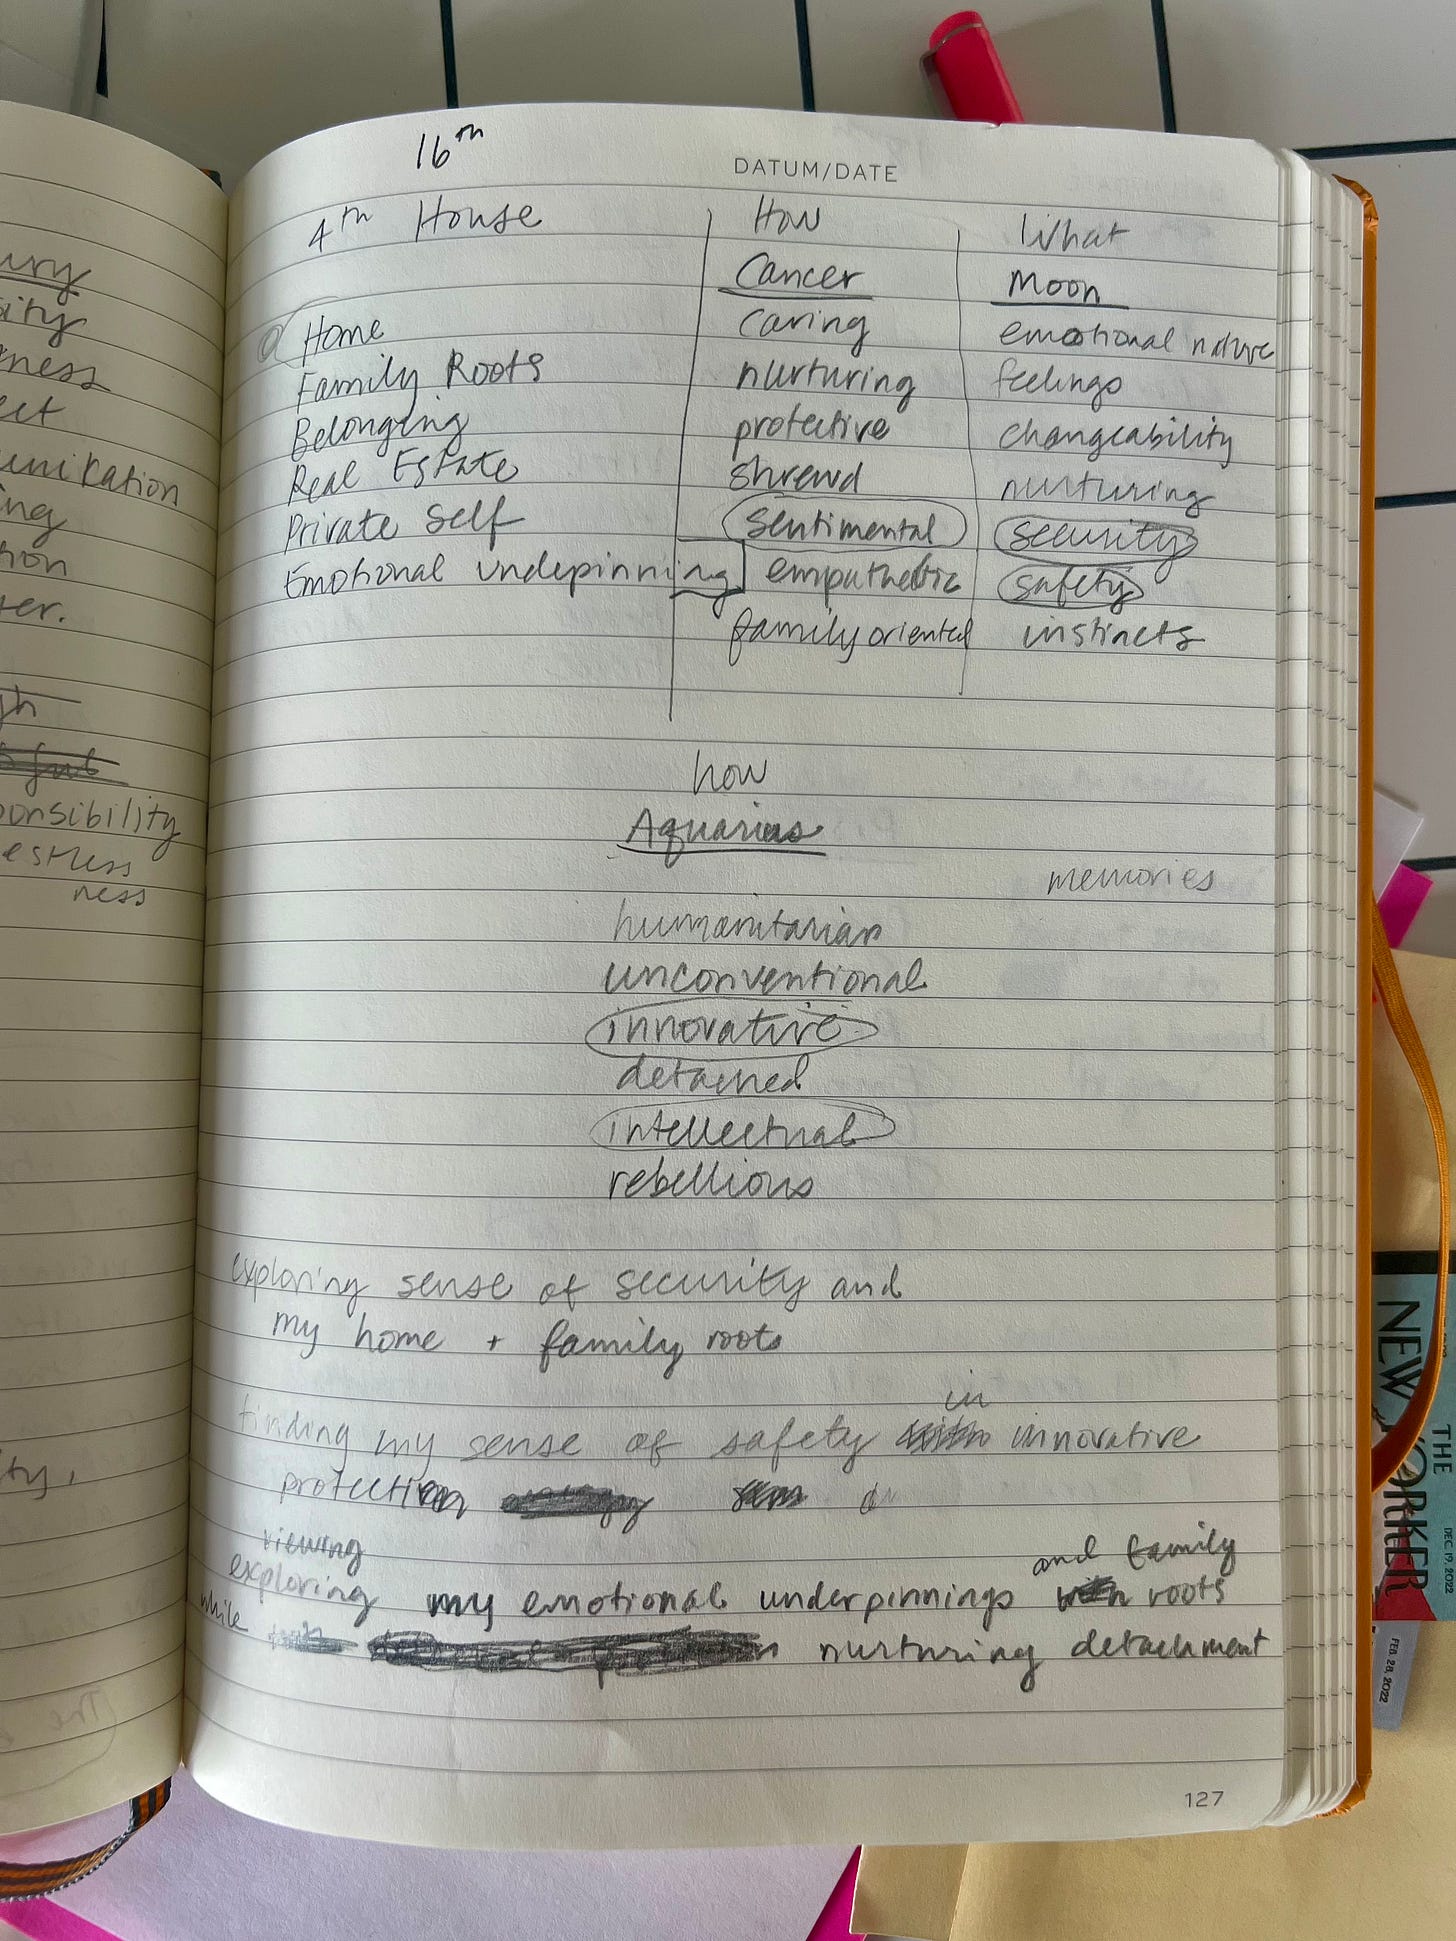 16th
DATUM/DATE
4th House
How
What
Cancer
Moon
Home
caring
emotional nature
Family Roots
nurturing
feelings
Belonging
protective
changeability
Real Estate
shrewd
nurturing
Private Self
sentimental
security
Emotional undepinning
empathetic
safety
family oriented
instincts
how
Aquarius
memories
humanitarian
unconventional
innovative
detached
intellectual
rebellious
exploring sense of security and
my home + family roots
in
finding my sense of safety innovative
protection
viewing
and family
exploring my emotional underpinnings roots
while nurturing detachment
127
ness
ect
ing
ponsibility
ness
THE
NEW YORKER
DEC. 19, 2022
FEB. 28, 2022